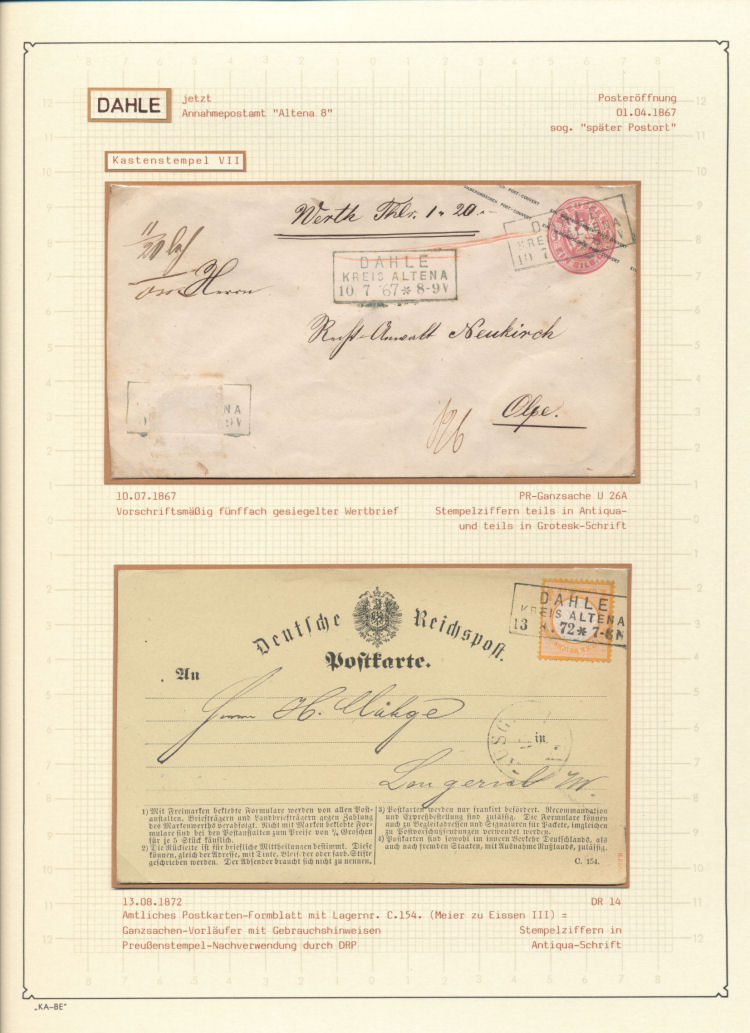 DAHLE
jetzt
Annahmepostamt "Altena 8"
Posteröffnung
01.04.1867
sog. "später Postort"
Kastenstempel VII
Werth Thlr. 1 " 20.
DAHLE
KREIS ALTENA
10 7 67 * 8-9V
D
KRE
10 7
Herrn
Rechts-Anwalt Neukirch
NA
9V
Olpe.
10.07.1867
Vorschriftsmäßig fünffach gesiegelter Wertbrief
PR-Ganzsache U 26A
Stempelziffern teils in Antiqua-
und teils in Grotesk-Schrift
DAHLE
KREIS ALTENA
13 72 * 7-8N
Deutsche Reichspost.
Postkarte.
An
Herrn H.
AUSG
in
1) Mit Freimarken beklebte Formulare werden von allen Post-
anstalten, Briefträgern und Landbriefträgern gegen Zahlung
des Markenwerths verabfolgt. Nicht mit Marken beklebte For-
mulare sind bei den Postanstalten zum Preise von ¼ Groschen
für je 5 Stück käuflich.
2) Die Rückseite ist für briefliche Mittheilungen bestimmt. Diese
können, gleich der Adresse, mit Tinte, Blei- der oder farb. Stifte
geschrieben werden. Der Absender braucht sich nicht zu nennen.
3) Postkarten werden nur frankirt befördert. Recommandation
und Expreßbestellung sind zulässig. Die Formulare können
auch zu Begleitadressen und Signaturen für Packete, imgleichen
zu Postvorschußsendungen verwendet werden.
4) Postkarten sind sowohl im innern Verkehr Deutschlands, als
auch nach fremden Staaten, mit Ausnahme Rußlands, zulässig.
C. 154.
13.08.1872
Amtliches Postkarten-Formblatt mit Lagernr. C.154. (Meier zu Eissen III) =
Ganzsachen-Vorläufer mit Gebrauchshinweisen
Preußenstempel-Nachverwendung durch DRP
DR 14
Stempelziffern in
Antiqua-Schrift
„KA-BE"